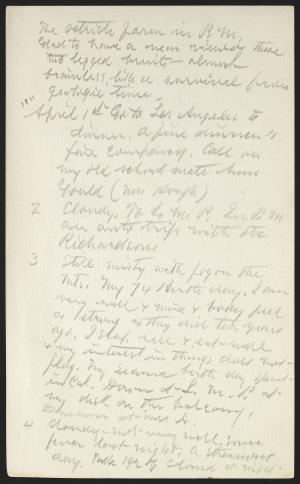 The ostrich farm in P.M.
Glad to have a near view of these
two legged brutes - almost
brainless, like a survival from
geologic time.
1911
April 1st Go to Los Angeles to
dinner. A fine dinner &
fine company. Call on
my old school mate Anna
Gould (Mrs Gough)
2 Cloudy. To La M. R. In P.M
an auto trip with the
Richardsons
3 Still misty with fog on the
Mts. My 74 birth day. I am
very well & mind & body feel
as strong as they did ten years
ago. I sleep well & eat well
& my interest in things does not
flag. My second birth day spent
in Cal. Down at L. M. R. at
my desk on the balcony,
Dinner at Mrs S.
4 Cloudy - not very well, some
fever last night. A strenuous
day. Pulse 192 & clomd at night.